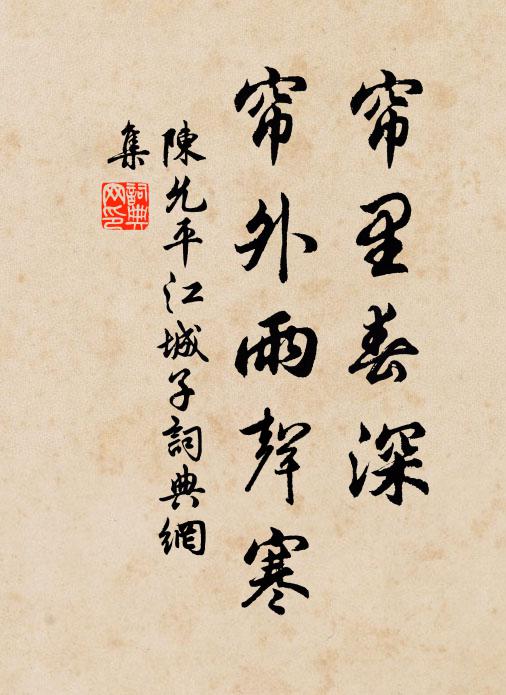 帘里春深
帘外雨聲寒
陳允平江城子詞典網
集
詞典網印